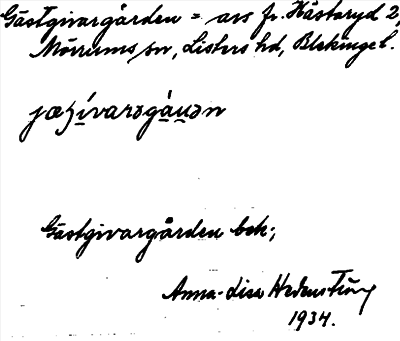 Gästgivargården = avs fr. Hästaryd 2,
Mörrums sn, Listers hd, Blekinge l.
Gästgivargården beb;
Anna-Lisa Hedenstierna
1934.